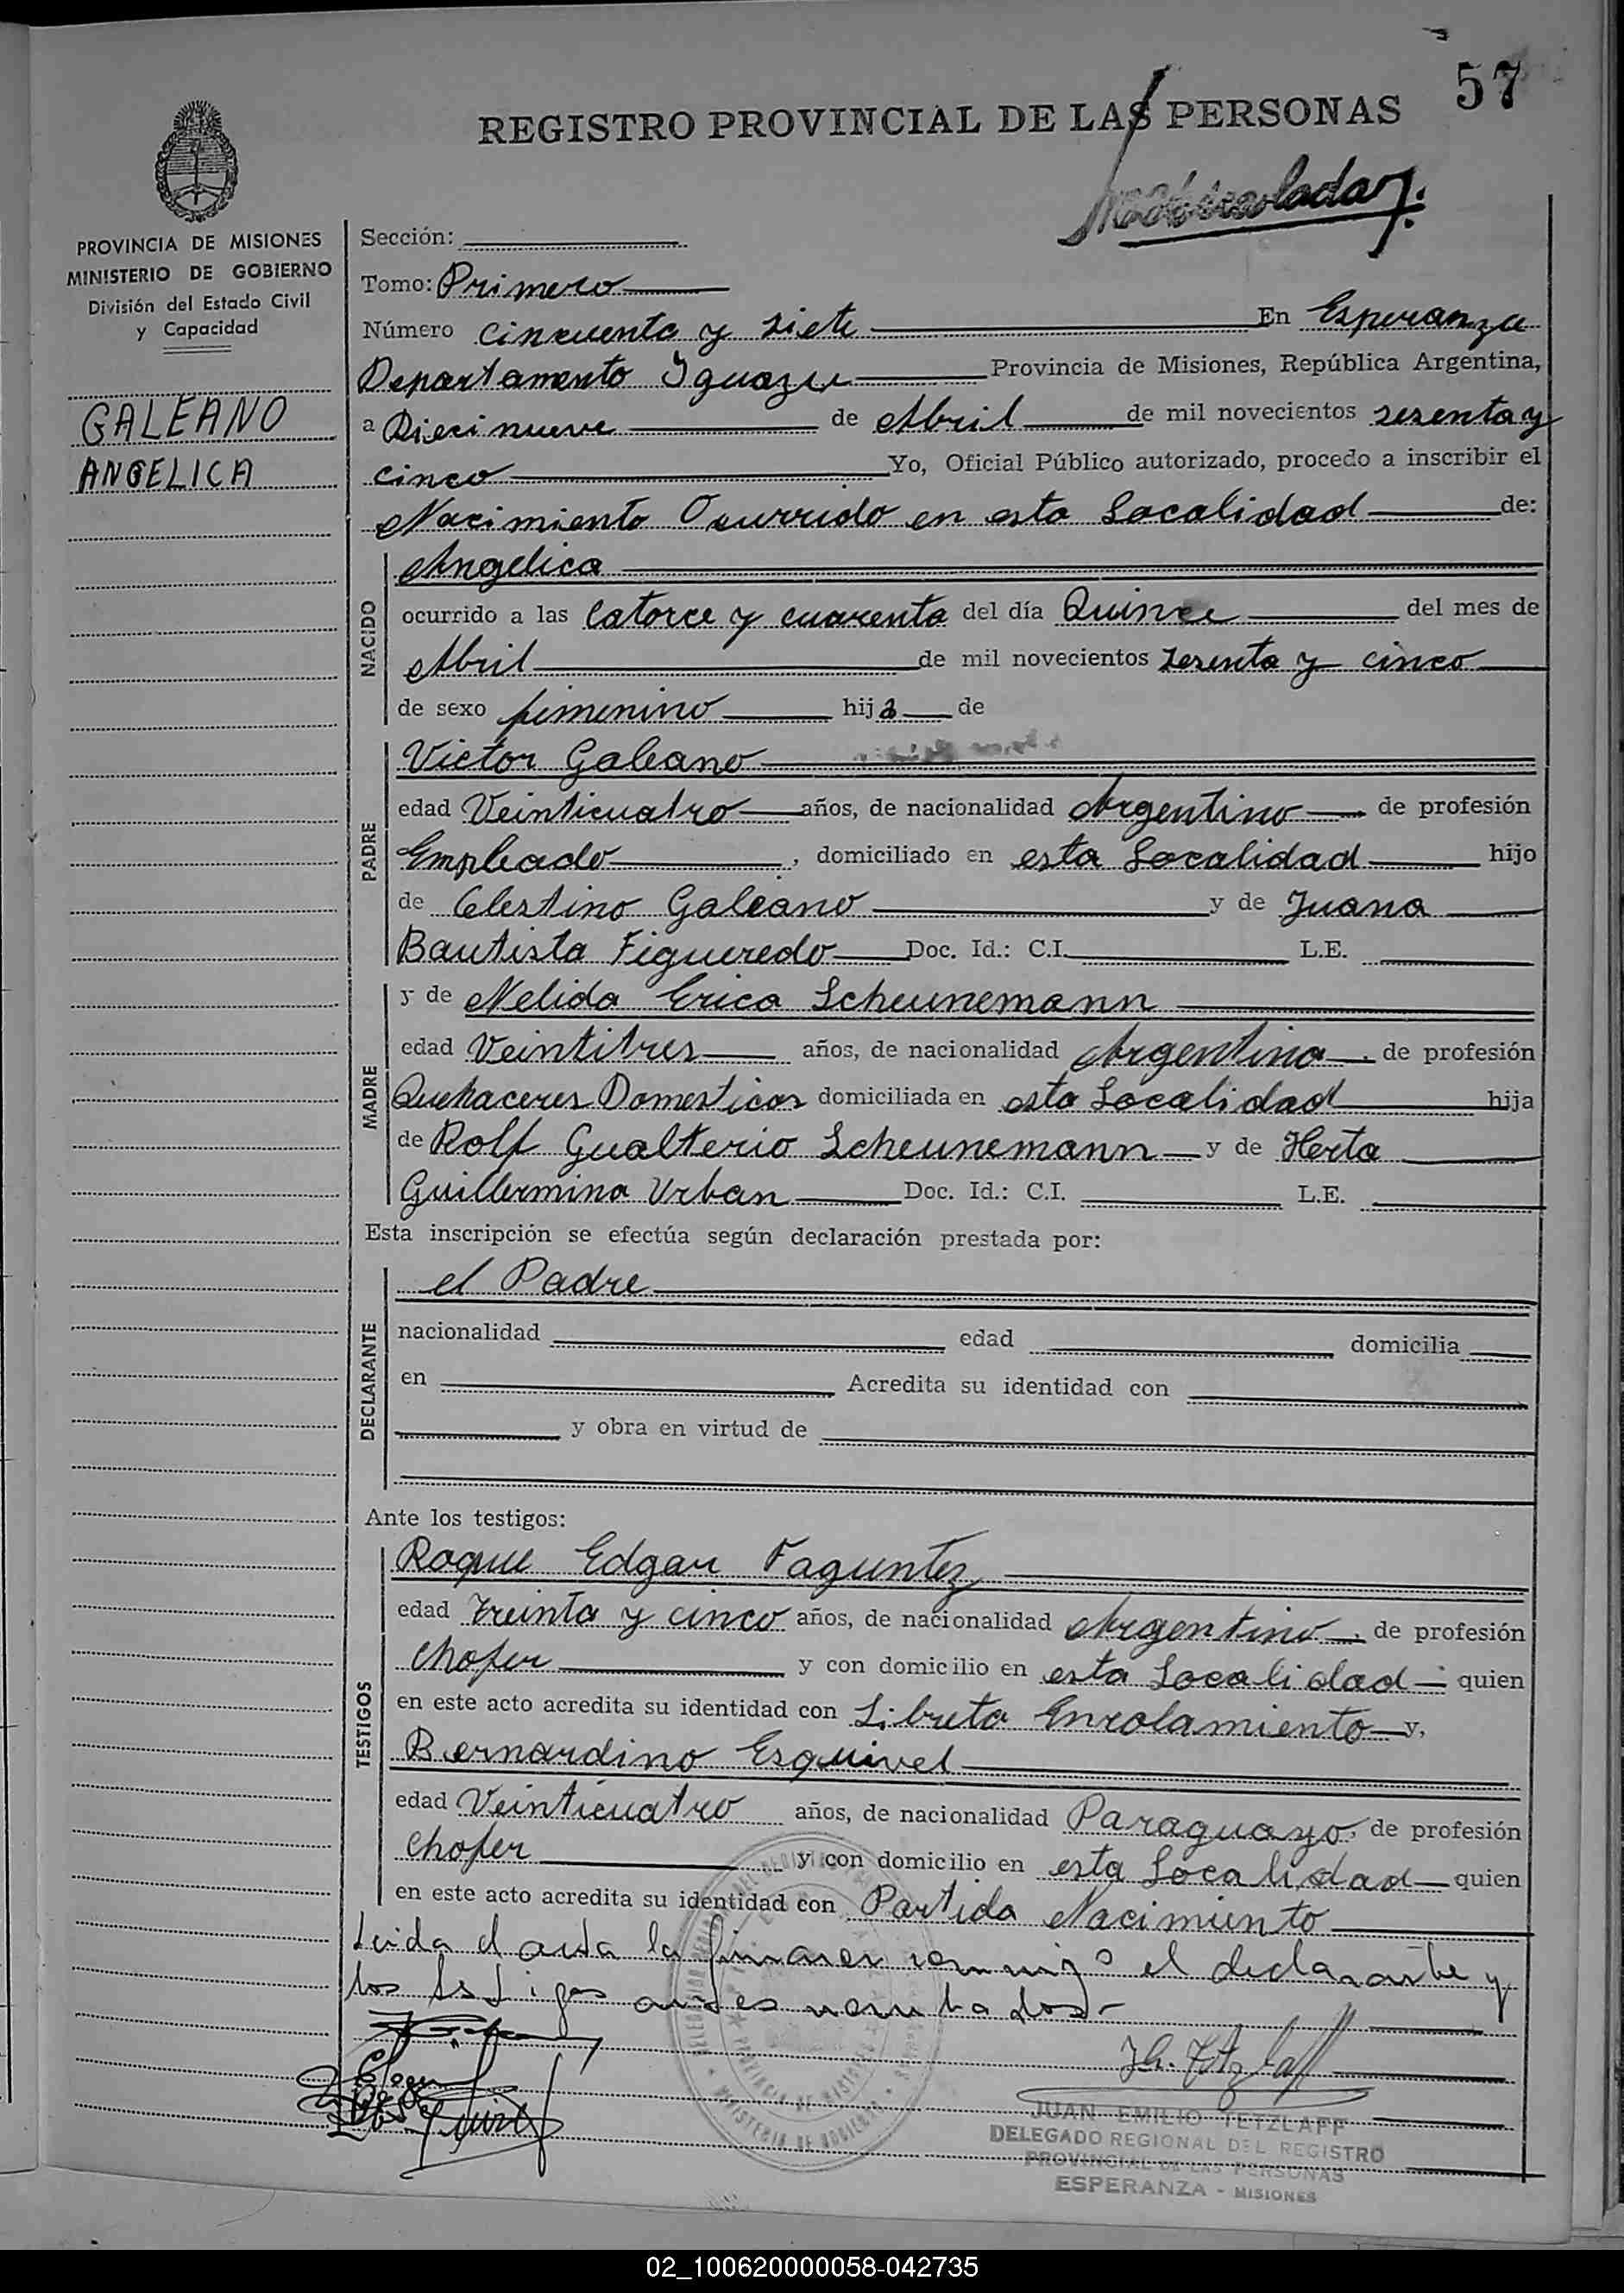 57
REGISTRO PROVINCIAL DE LAS PERSONAS
Matriculada
PROVINCIA DE MISIONES
MINISTERIO DE GOBIERNO
División del Estado Civil
y Capacidad
GALEANO
ANGELICA
Sección:
Tomo: Primero
Número cincuenta y siete En Esperanza
Departamento Iguazu Provincia de Misiones, República Argentina,
a Diecinueve de Abril de mil novecientos sesenta y
cinco Yo, Oficial Público autorizado, procedo a inscribir el
Nacimiento Ocurrido en esta Localidad de:
NACIDO
Angelica
ocurrido a las Catorce y cuarenta del día Quince del mes de
Abril de mil novecientos sesenta y cinco
de sexo femenino hija de
PADRE
Victor Galeano
edad Veinticuatro años, de nacionalidad Argentino de profesión
Empleado, domiciliado en esta Localidad hijo
de Celestino Galeano y de Juana
Bautista Figueredo Doc. Id.: C.I. L.E.
MADRE
y de Nelida Erica Scheunemann
edad Veintitres años, de nacionalidad Argentina, de profesión
Quehaceres Domesticos domiciliada en esta Localidad hija
de Rolf Gualterio Scheunemann y de Herta
Guillermina Urban Doc. Id.: C.I. L.E.
Esta inscripción se efectúa según declaración prestada por:
DECLARANTE
el Padre
nacionalidad edad domicilia
en Acredita su identidad con
y obra en virtud de
Ante los testigos:
TESTIGOS
Roque Edgar Faguntez
edad treinta y cinco años, de nacionalidad Argentino, de profesión
chofer y con domicilio en esta Localidad quien
en este acto acredita su identidad con Libreta Enrolamiento y,
Bernardino Esquivel
edad Veinticuatro años, de nacionalidad Paraguayo, de profesión
chofer y con domicilio en esta Localidad quien
en este acto acredita su identidad con Partida Nacimiento
Leida el acta la firman conmigo el declarante y
los testigos antes nombrados.-
JUAN EMILIO TETZLAFF
DELEGADO REGIONAL DEL REGISTRO
PROVINCIAL DE LAS PERSONAS
ESPERANZA - MISIONES
02_100620000058-042735